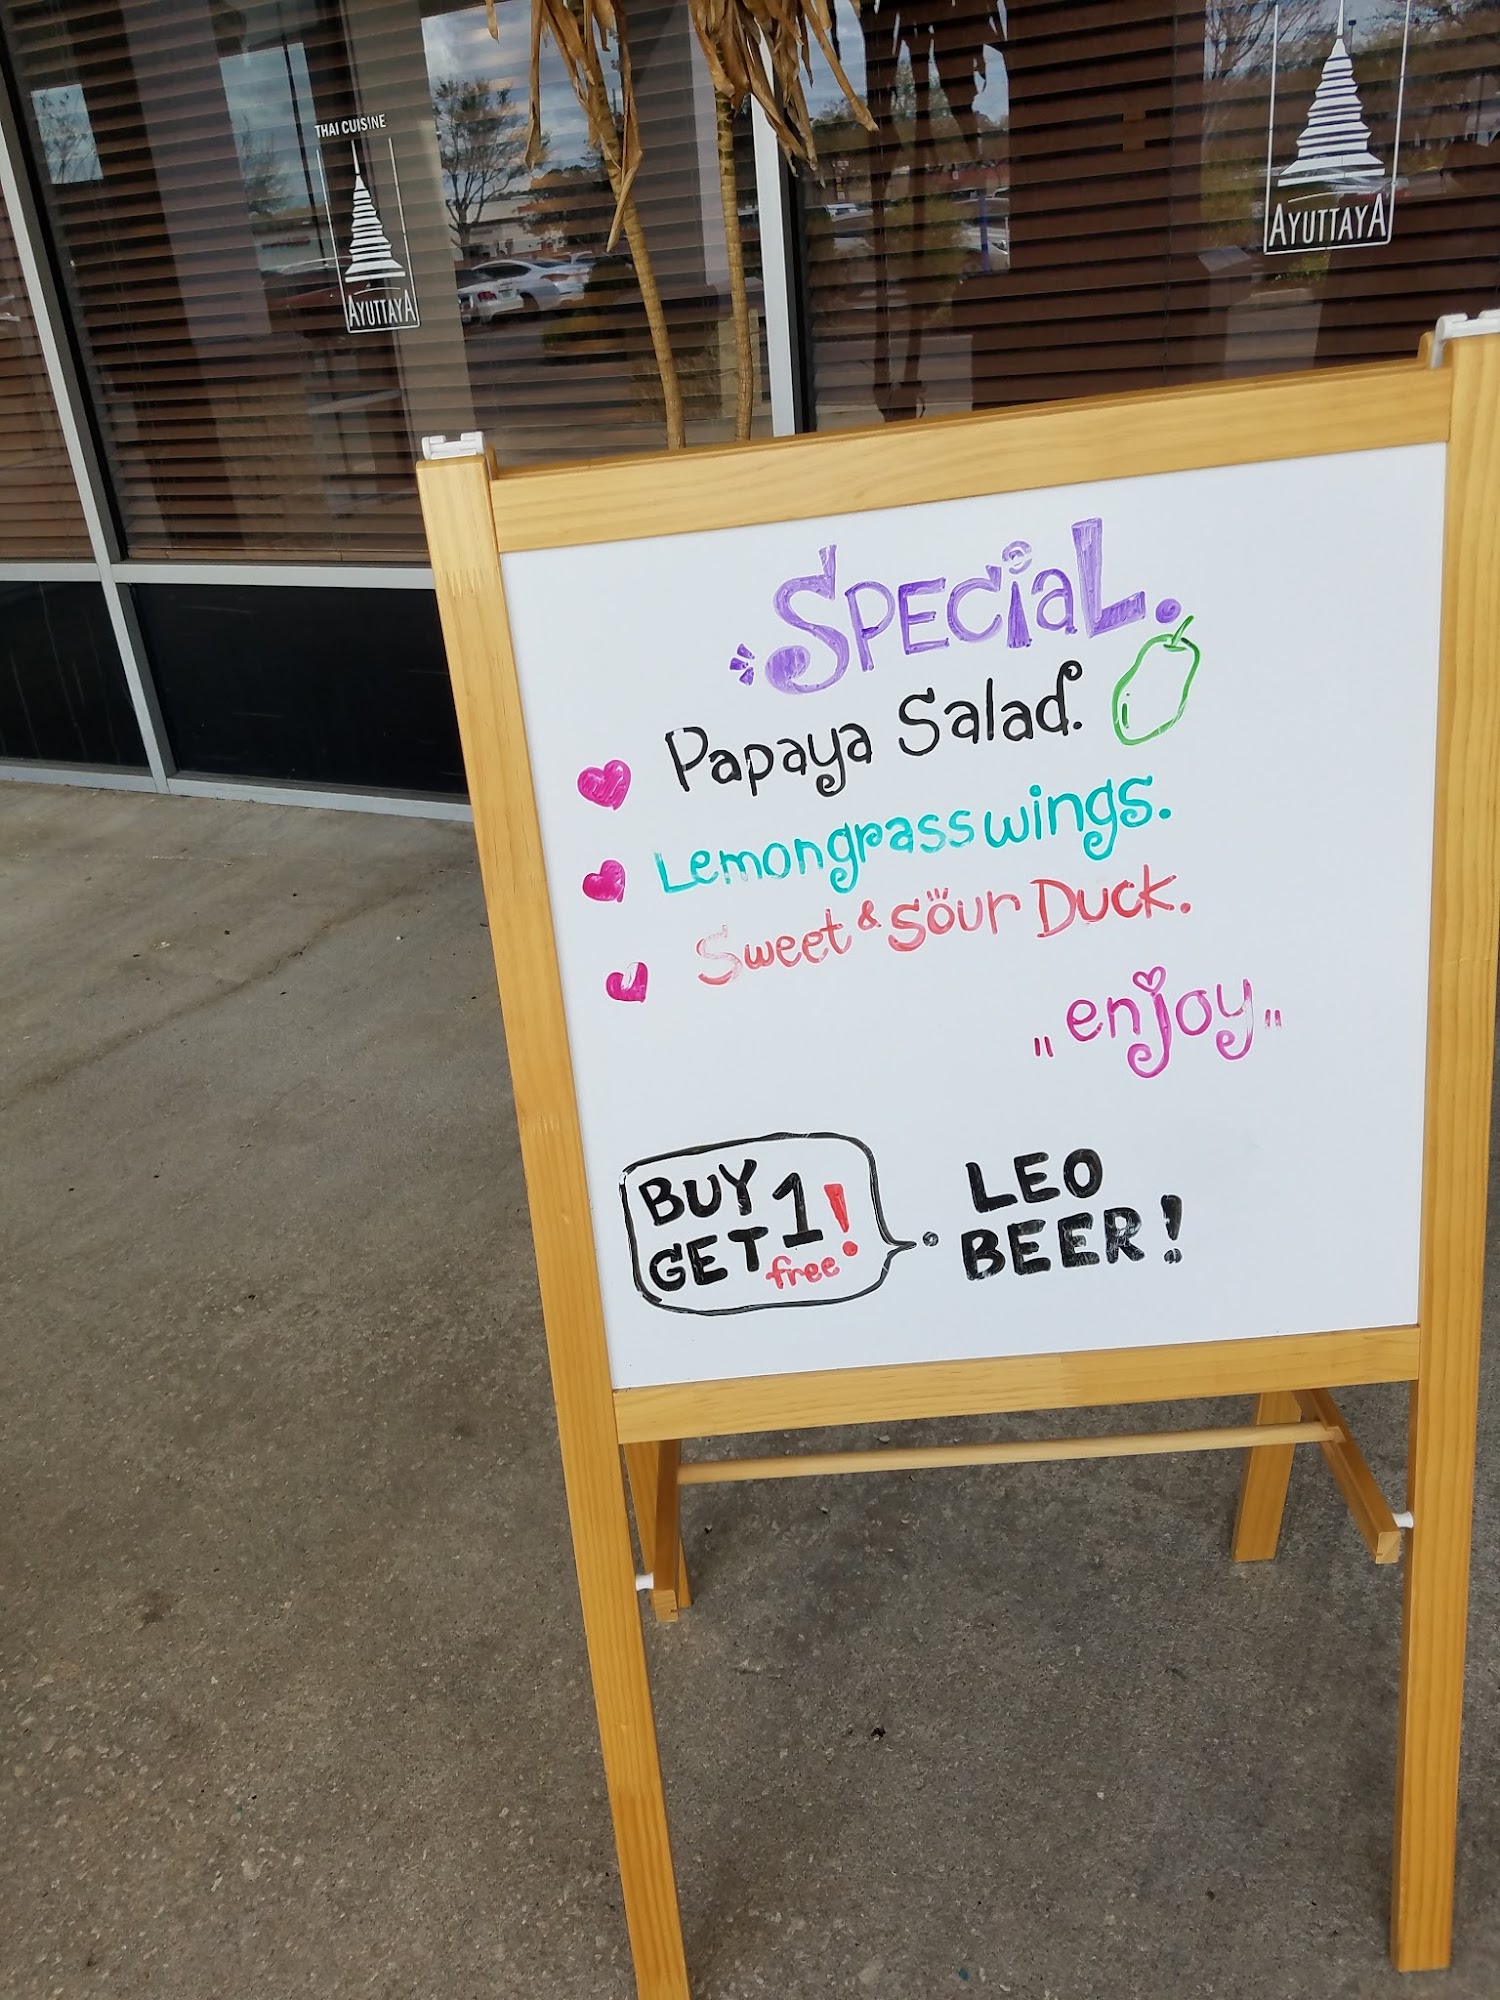 THAI CUISINE
AYUTTAYA
AYUTTAYA
SPECiaL.
Papaya Salad.
Lemongrass wings.
Sweet & Sour Duck.
"enjoy"
BUY 1!
GET free
LEO
BEER!